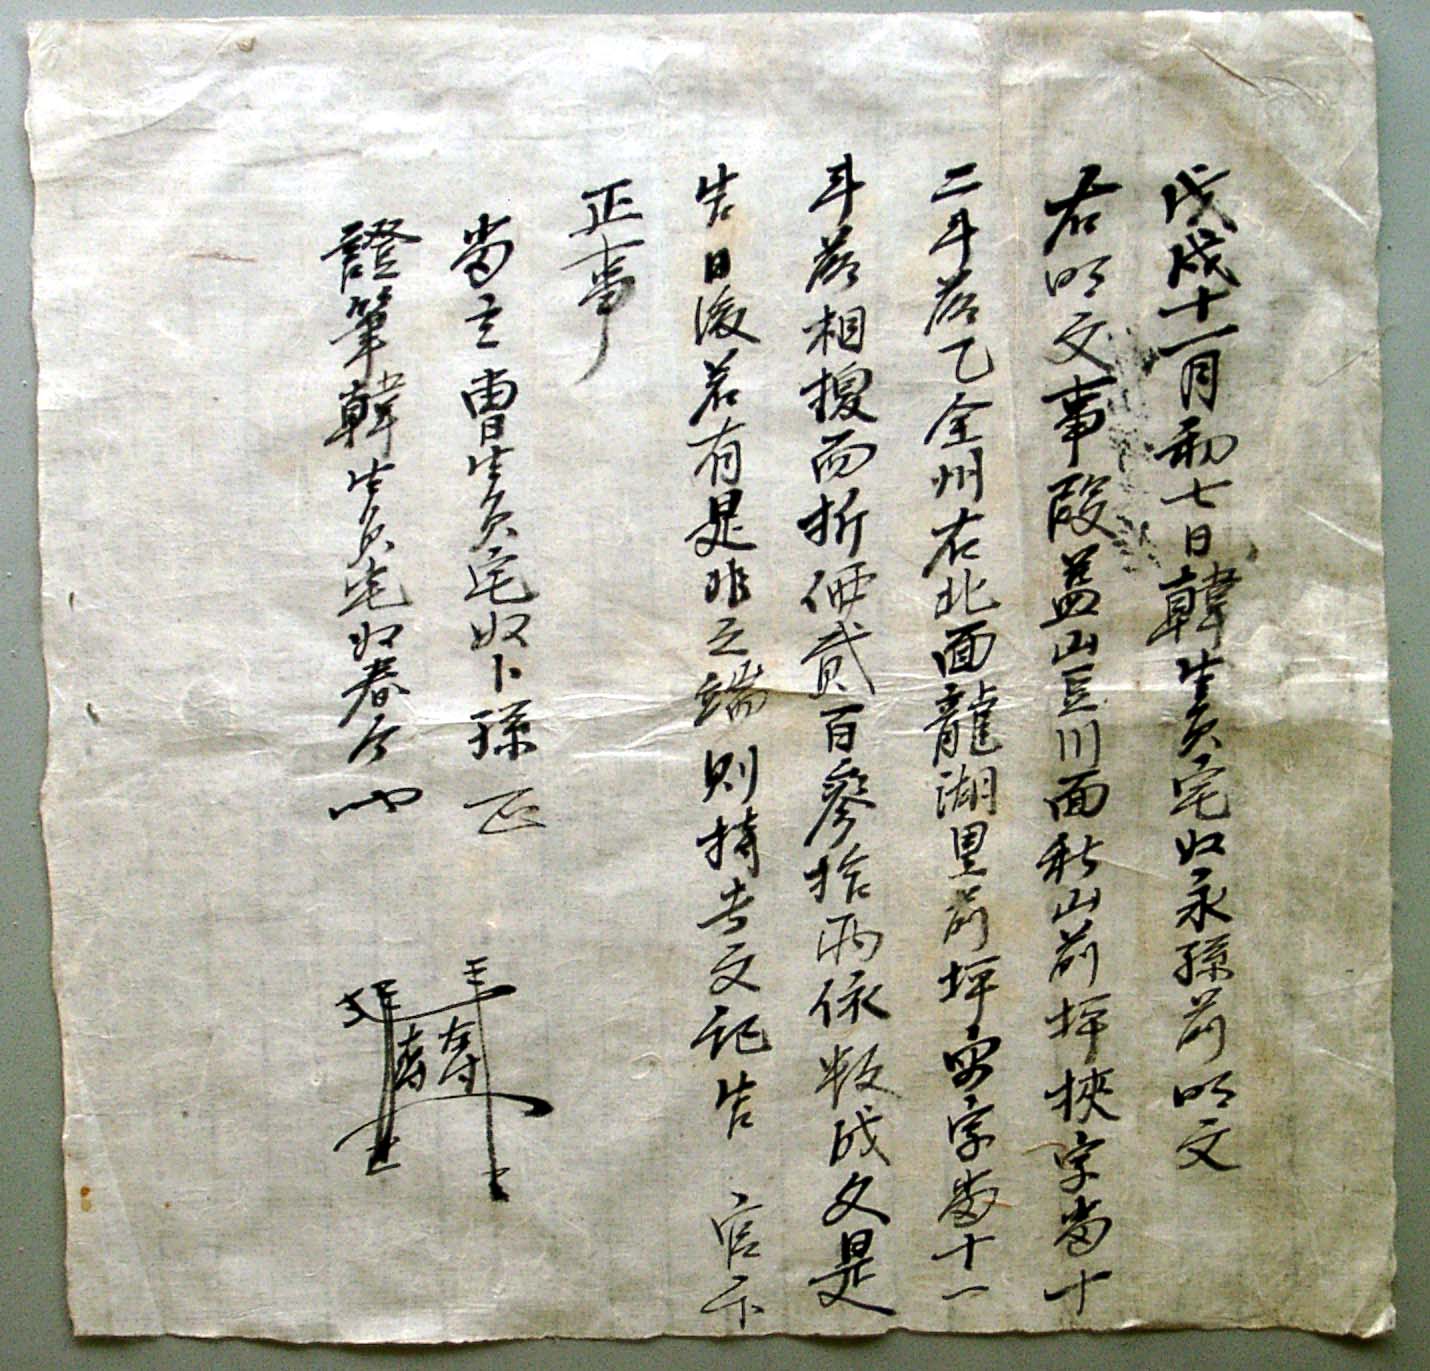 戊戌十一月初七日韓生員宅奴永孫前明文
右明文事段益山豆川面秋山前坪挾字畓十
二斗落乙全州右北面龍湖里前坪字畓十一
斗落相換而折価貳百參拾兩依數成文是
告日後若有是非之端則持去文記告 官下
正事
畓主曺生員宅奴卜孫
證筆韓生員宅奴春
左寸